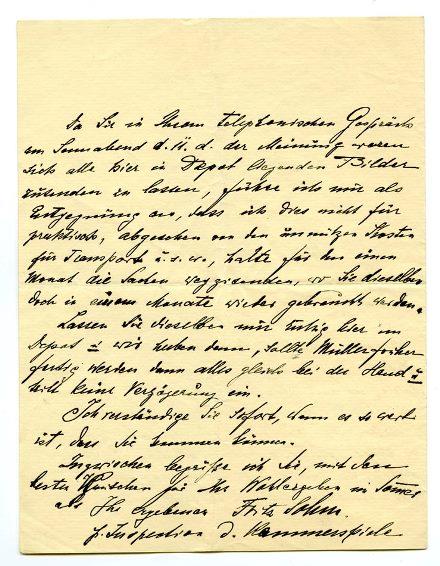 Da Sie in Ihrem telephonischen Gespräch
am Sonnabend d. 11. d. der Meinung waren
sich alle hier in Depot liegenden Bilder
zusenden zu lassen, führe ich nur als
Entgegnung an, dass ich dies nicht für
praktisch, abgesehen von den unnützen Kosten
für Transport u.s.w., halte für den einen
Monat die Sachen wegzusenden, wo Sie dieselben
doch in einem Monate wieder gebraucht werden.
Lassen Sie dieselben nur ruhig hier im
Depot u wir haben dann, sollte Müller früher
fertig werden dann alles gleich bei der Hand u
tritt keine Verzögerung ein.
Ich verständige Sie sofort, wenn es so weit
ist, dass Sie kommen können.
Inzwischen begrüße ich Sie, mit den
besten Wünschen für Ihr Wohlergehen in
als Ihr ergebener Fritz
f. Inspection d. Kammerspiele